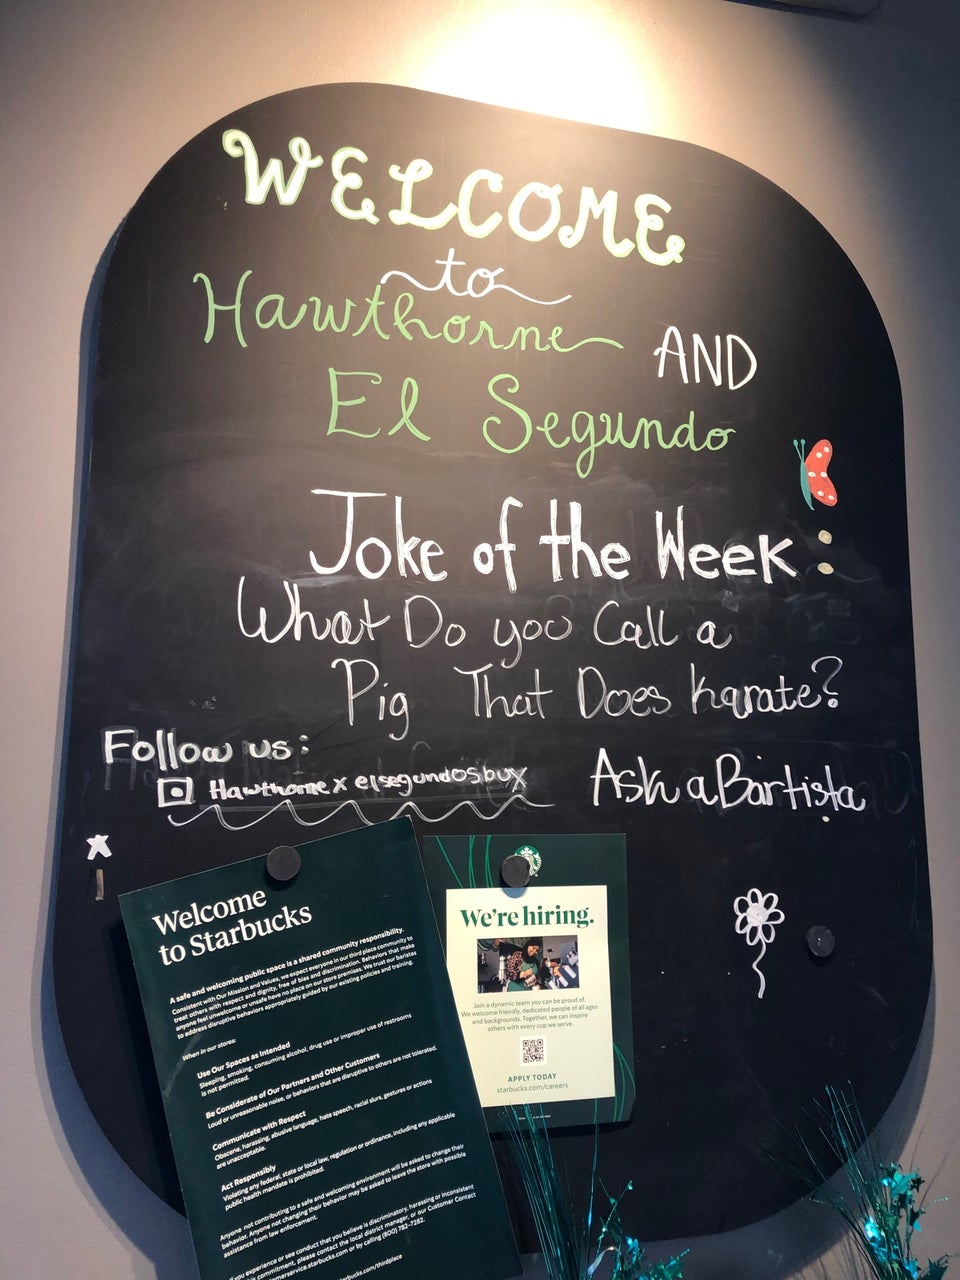 WELCOME
to
Hawthorne AND
El Segundo
Joke of the Week:
What Do you Call a
Pig That Does Karate?
Follow us:
Hawthorne x elsegundosbux
Ask a Bartista
Welcome
to Starbucks
A safe and welcoming public space is a shared community responsibility.
Consistent with Our Mission and Values, we expect everyone in our third place community to
treat others with respect and dignity, free of bias and discrimination. Behaviors that make
anyone feel unwelcome or unsafe have no place on our store premises. We trust our baristas
to address disruptive behaviors appropriately guided by our existing policies and training.
When in our stores:
Use Our Spaces as Intended
Sleeping, smoking, consuming alcohol, drug use or improper use of restrooms
is not permitted.
Be Considerate of Our Partners and Other Customers
Loud or unreasonable noise, or behaviors that are disruptive to others are not tolerated.
Communicate with Respect
Obscene, harassing, abusive language, hate speech, racial slurs, gestures or actions
are unacceptable.
Act Responsibly
Violating any federal, state or local law, regulation or ordinance, including any applicable
public health mandate is prohibited.
Anyone not contributing to a safe and welcoming environment will be asked to change their
behavior. Anyone not changing their behavior may be asked to leave the store with possible
assistance from law enforcement.
If you experience or see conduct that you believe is discriminatory, harassing or inconsistent
commitment, please contact the local district manager, or our Customer Contact
customerservice.starbucks.com or by calling (800) 782-7282.
starbucks.com/thirdplace
We're hiring.
Join a dynamic team you can be proud of.
We welcome friendly, dedicated people of all ages
and backgrounds. Together, we can inspire
others with every cup we serve.
APPLY TODAY
starbucks.com/careers